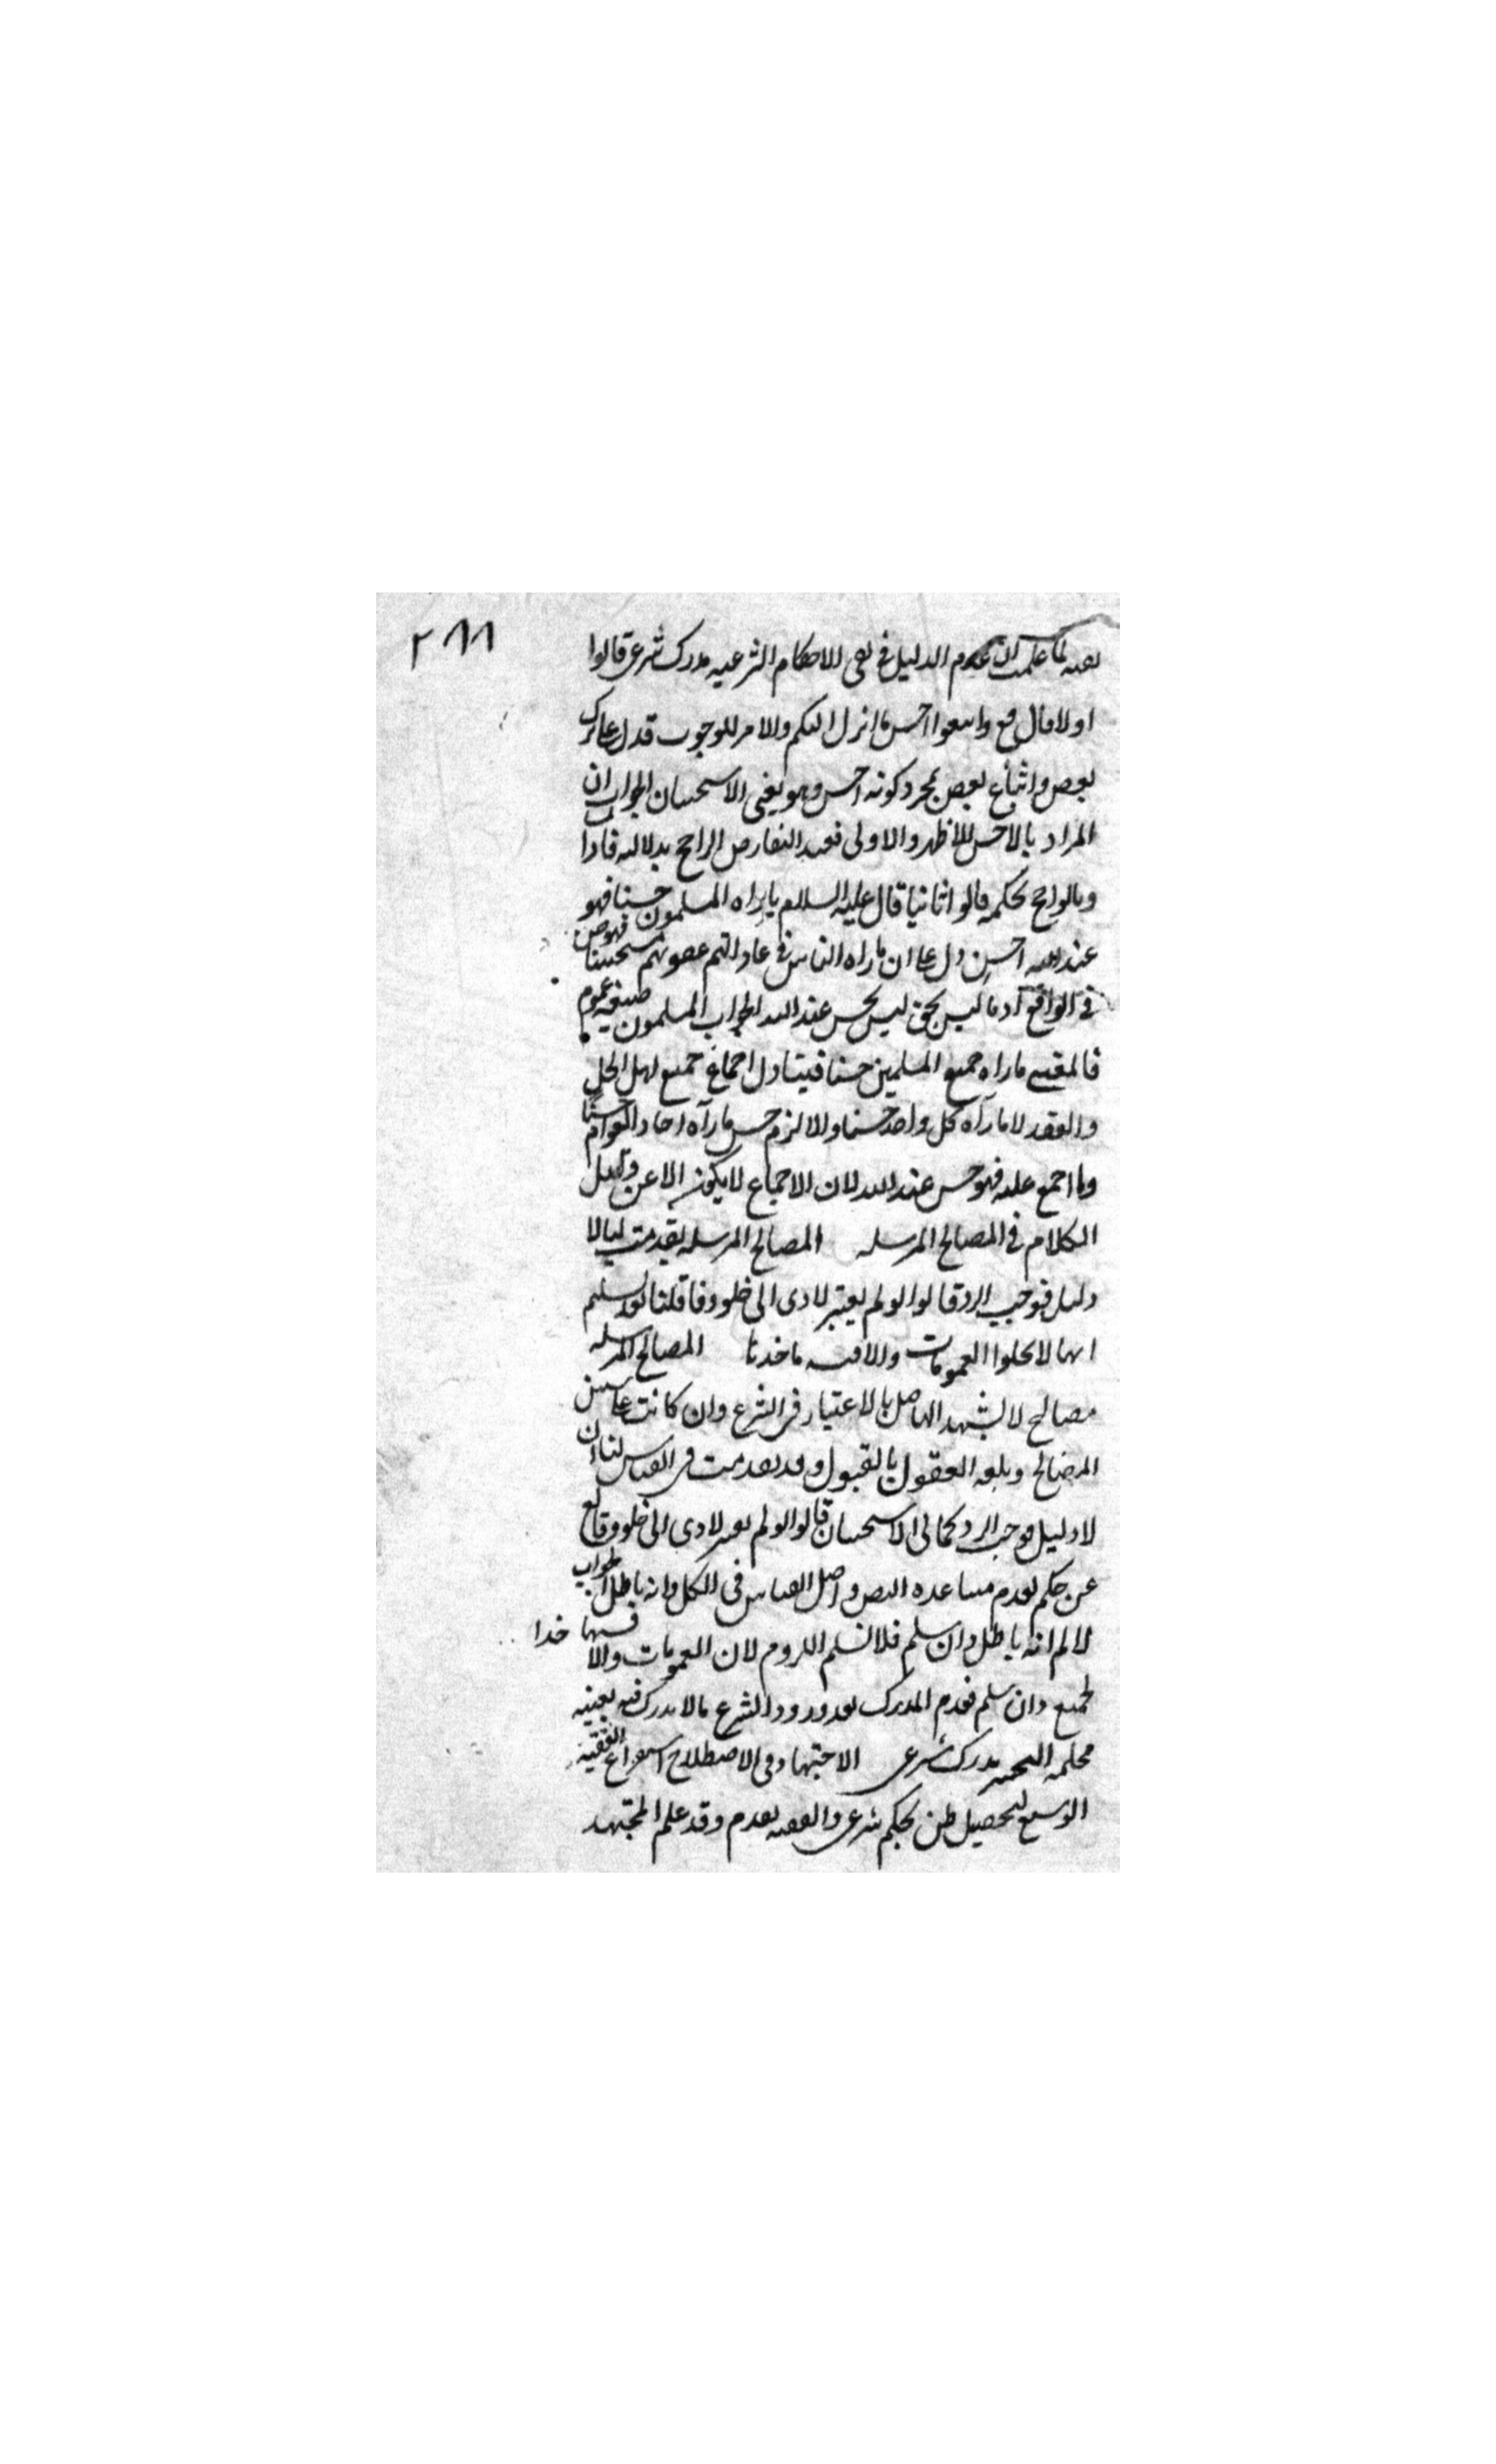 ٢٨٨
نفيه لما علمت ان عدم الدليل في نفي الاحكام الشرعيه مدرك شرعى قالوا
اولا قال تع واتبعوا احسن ما انزل اليكم والامر للوجوب فدل على ترك
بعض واتباع بعض بمجرد كونه احسن وهو يغنى الاستحسان الجواب ان
المراد بالاحسن الاظهر والاولى فعند التعارض الراجح بدلالته فاذا
وبالراجح بحكمه قالوا ثانيا قال عليه السلام ما راه المسلمون حسنا فهو
عند الله احسن دل على ان ما راه الناس في عاداتهم عصوبهم مستحسنا فهو حق
في الواقع اد ما ليس بحق ليس بحسن عند الله الجواب المسلمون صيغه عموم
فالمعنى ما راه جميع المسلمين حسنا فيتناول اجماع جميع اهل الحل
والعقد لا ما رآه كل واحد حسنا والا لزم حسن ما رآه احاد العوام حسنا
وما اجمع عليه فهو حسن عند الله لان الاجماع لا يكون الا عن دليل
الكلام في المصالح المرسله المصالح المرسله تقدمت لنا لا
دليل فوجب الرد قالوا لو لم يعتبر لادى الى خلو وقا قلنا بعد تسليم
انها لا تخلوا العمومات والاقيسه ماخذنا المصالح المرسله
مصالح لا يشهد لها اصل بالاعتبار في الشرع وان كانت على سنن
المصالح وتلقه العقول بالقبول وقد تقدمت في القياس لنا ان
لا دليل فوجب الرد كما في الاستحسان قالوا لو لم يعتبر لادى الى خلو وقائع
عن حكم لعدم مساعده النص واصل القياس في الكل وانه باطل الجواب
لا نم انه باطل وان سلم فلا نسلم اللزوم لان العمومات والاقيسه ماخذا
لجميع وان سلم فعدم المدرك بعد ورود الشرع بما لا مدرك فيه بعينه
محكمه التخيير مدرك شرعى الاجتهاد وفي الاصطلاح استفراغ الفقيه
الوسع لتحصيل ظن بحكم شرعى والفقيه تقدم وقد علم المجتهد